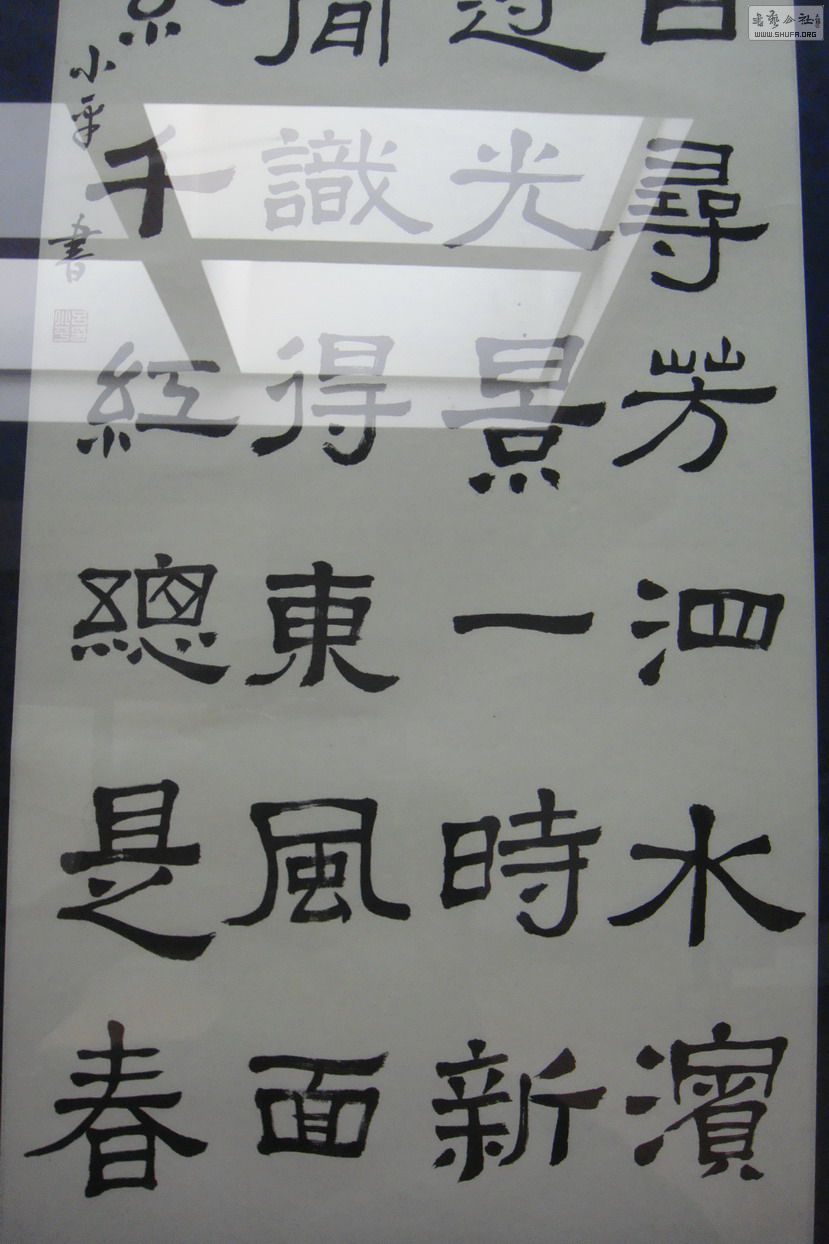 日尋芳泗水濱
光景一時新
識得東風面
千紅總是春
小平書
書藝公社
WWW.SHUFA.ORG